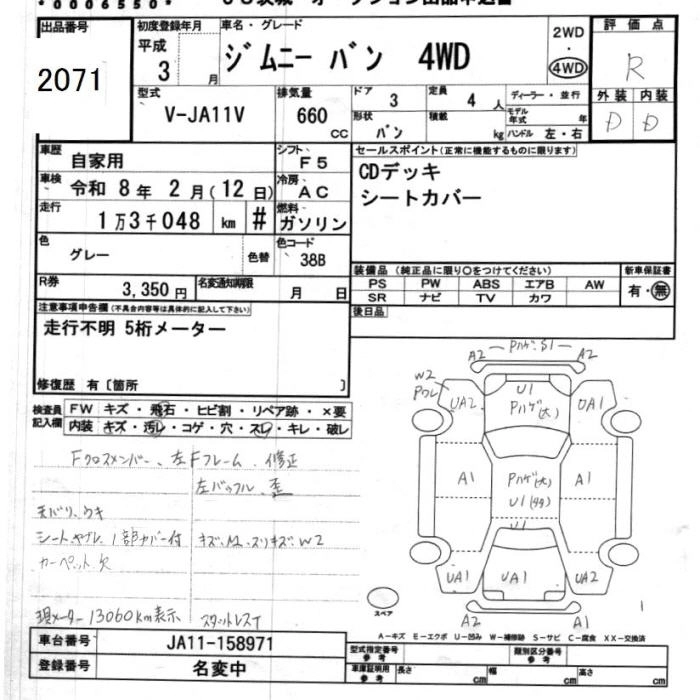 *0006550*
出品番号
2071
初度登録年月
平成
3 月
車名・グレード
ジムニー バン 4WD
2WD
・
4WD
評価点
R
型式
V-JA11V
排気量
660
CC
ドア 3
定員 4 人
ディーラー・並行
外装 内装
D D
形状 バン
積載 kg
モデル年式 年
ハンドル 左・右
車歴 自家用
シフト F5
セールスポイント(正常に機能するものに限ります)
車検 令和 8年 2月(12日)
冷房 AC
CDデッキ
シートカバー
走行 1万3千048 km #
燃料 ガソリン
色 グレー 色替
色コード 38B
装備品(純正品に限り〇をつけてください)
新車保証書
PS PW ABS エアB AW
SR ナビ TV カワ
有・無
R券 3,350円
名変通知期限 月 日
後日品
注意事項申告欄(不具合内容等は具体的に記入して下さい)
走行不明 5桁メーター
修復歴 有〔箇所 〕
検査員記入欄
FW キズ・飛石・ヒビ割・リペア跡・×要
内装 キズ・汚レ・コゲ・穴・スレ・キレ・破レ
Fクロスメンバー、左Fフレーム、修正
左バッフル、歪
天バリ、ウキ
シートヤブレ、1部カバー付
キズ、A2、スリキズ、W2
カーペット欠
現メーター13060km表示
スタットレスT
A2 PハゲS1 A2
W2
Pワレ
UA2 U1 UA1
Pハゲ(大)
A1 Pハゲ(大) A1
U1(多)
U1
UA1 UA1 UA2
スペア
A2 A1
1
A-キズ E-エクボ U-凹み W-補修跡 S-サビ C-腐食 XX-交換済
車台番号 JA11-158971
登録番号 名変中
型式指定番号
参考
類別区分番号
参考
車庫証明用
参考
長さ cm
幅 cm
高さ cm